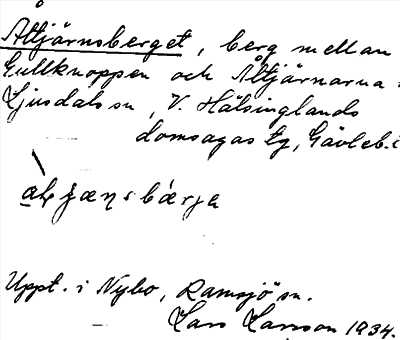 Åltjärnsberget, berg mellan
Gullknoppen och Åltjärnarna i
Ljusdals sn, V. Hälsinglands
domsagas tg, Gävleb.l
Uppt. i Nybo, Ramsjö sn.
Lars Larsson 1934.